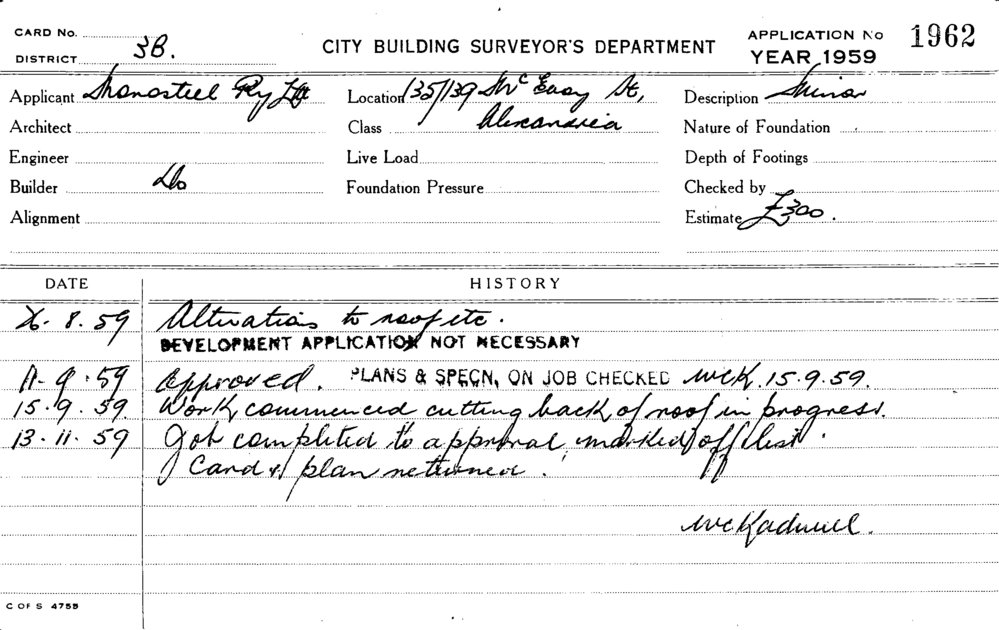 CARD No.
DISTRICT 3B.
CITY BUILDING SURVEYOR'S DEPARTMENT
APPLICATION No 1962
YEAR 1959
Applicant Pty Ltd
Location 135/139 McEvoy St,
Description Minor
Architect
Class Alexandria
Nature of Foundation
Engineer
Live Load
Depth of Footings
Builder Do
Foundation Pressure
Checked by
Alignment
Estimate £300.
DATE HISTORY
8.59 Alterations to roof etc.
DEVELOPMENT APPLICATION NOT NECESSARY
11.9.59 Approved. PLANS & SPECN, ON JOB CHECKED WCK. 15.9.59.
15.9.59 Work commenced cutting back of roof in progress.
13.11.59 Job completed to approval, marked off list.
Card & plan returned.
C OF S 475B